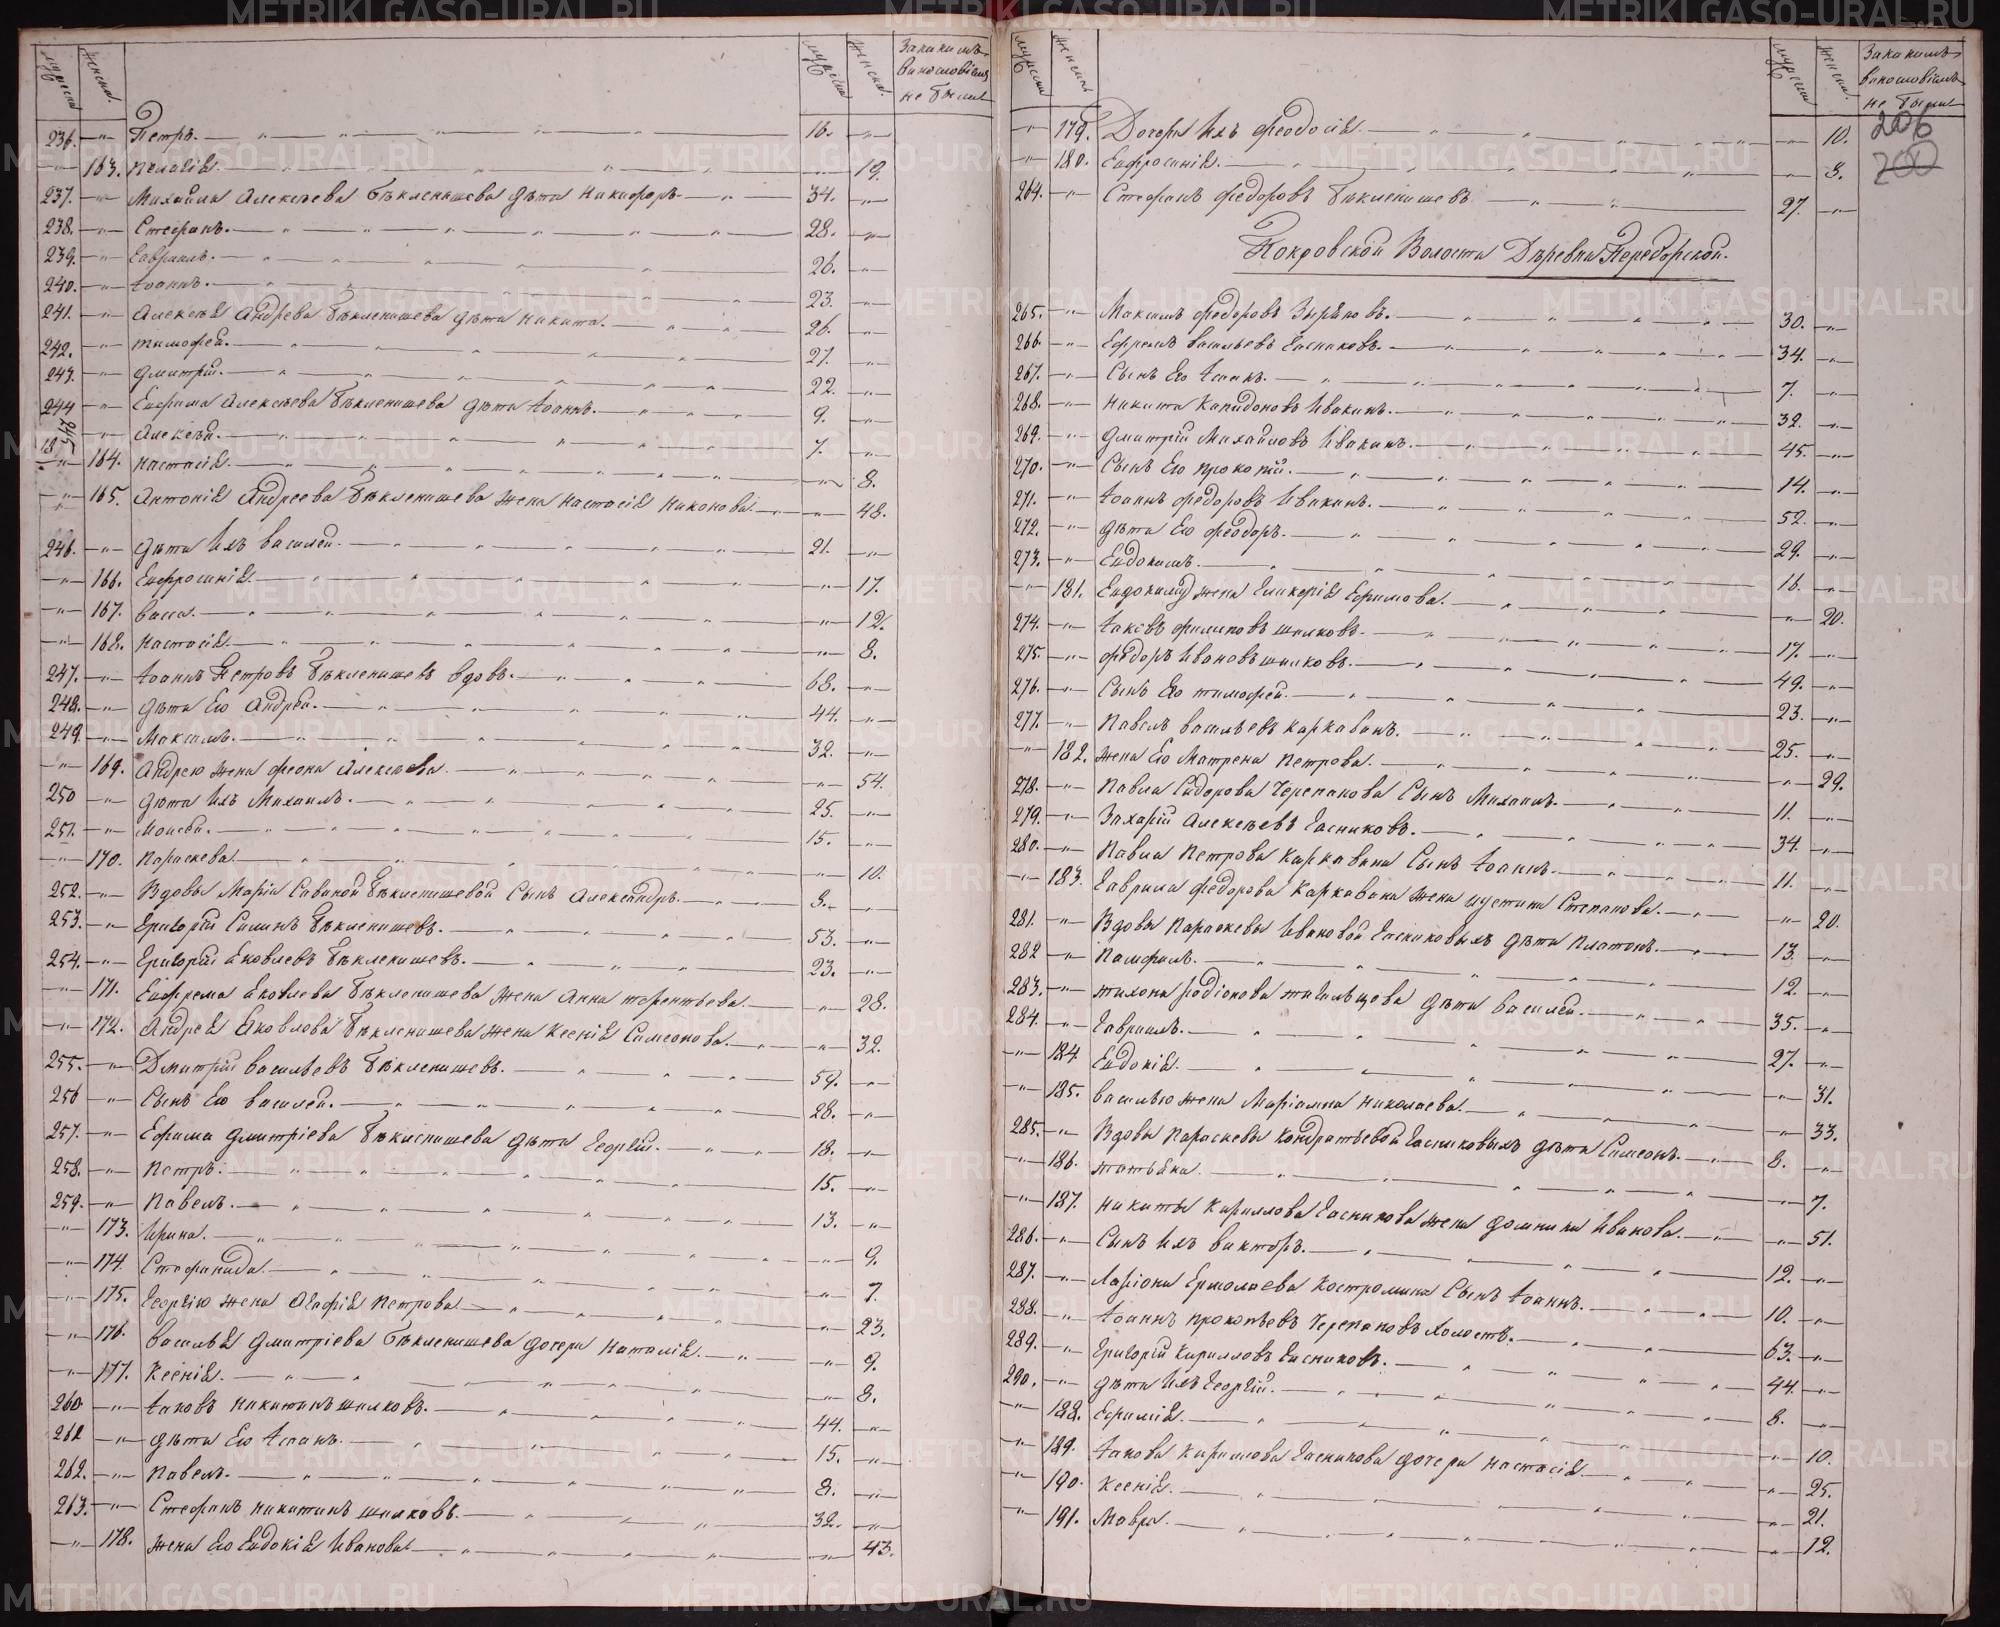 мужеска
женска
мужеска
женска
За какимъ
винословіемъ
не были
236. Петръ. 16.
163. Пелагія. 19.
237. Михайла Алексѣева Бѣкленищева дѣти Никифоръ 34.
238. Стефанъ. 28.
239. Гаврилъ. 26.
240. Іоаннъ. 23.
241. Алексѣя Андреева Бѣкленищева дѣти Никита. 26.
242. Тимофей. 27.
243. Дмитрій. 22.
244 Ефима Алексѣева Бѣкленищева дѣти Іоаннъ. 9.
245 Алексѣй. 7.
164. Настасія. 8.
165. Антонія Андреева Бѣкленищева жена Настасія Никонова 48.
246. дѣти Ихъ Василей. 21.
166. Ефросинія 17.
167. Васса. 12.
168. Настасія. 8.
247. Іоаннъ Петровъ Бѣкленищевъ вдовъ. 68.
248. дѣти Его Андрей. 44.
249. Максимъ. 32.
169. Андрею жена Феона Алексѣева 54.
250 дѣти Ихъ Михаилъ. 25.
251. Моисей. 15.
170. Параскева 10.
252. Вдовы Маріи Савиной Бѣкленищевой Сынъ Александръ. 8.
253. Григорій Силинъ Бѣкленищевъ. 53.
254. Григорій Яковлевъ Бѣкленищевъ. 23.
171. Ефрема Яковлева Бѣкленищева жена Анна Терентьева. 28.
172. Андрея Яковлева Бѣкленищева жена Ксенія Симеонова. 32.
255. Дмитрій Васильевъ Бѣкленищевъ. 59.
256 Сынъ Его Василей. 28.
257. Ефима Дмитріева Бѣкленищева дѣти Георгій. 18.
258. Петръ. 15.
259. Павелъ. 13.
173. Ирина. 9.
174. Стефанида. 7.
175. Георгію жена Агафія Петрова 23.
176. Василья Дмитріева Бѣкленищева дочери Наталія. 9.
177. Ксенія. 8.
260 Іаковъ Никитинъ Шилковъ. 44.
261 дѣти Его Іоаннъ. 15.
262. Павелъ. 8.
263. Стефанъ Никитинъ Шилковъ. 32.
178. жена Его Евдокія Иванова 43.
мужески
женскъ
мужески
женски.
За какимъ
винословіемъ
не были
206
200
179. Дочери Ихъ Феодосія. 10.
180. Ефросинія. 8.
264. Стефанъ Федоровъ Бѣкленищевъ 27.
Покровской Волости Деревни Передорской.
265. Максимъ Федоровъ Зыряновъ. 30.
266. Ефремъ Васильевъ Гасниковъ. 34.
267. Сынъ Его Исаакъ. 7.
268. Никита Капидоновъ Ивакинъ. 32.
269. Дмитрій Михайловъ Ивакинъ. 45.
270. Сынъ Его Прокопій. 14.
271. Іоаннъ Федоровъ Ивакинъ. 52.
272. дѣти Его Феодоръ. 29.
273. Евдокимъ. 16.
181. Евдокиму жена Гликерія Ефимова. 20.
274. Іаковъ Филиповъ Шилковъ. 17.
275. Федоръ Ивановъ Шилковъ. 49.
276. Сынъ Его Тимофей. 23.
277. Павелъ Васильевъ Каркавинъ. 25.
182. жена Его Матрена Петрова. 29.
278. Павла Сидорова Черепанова Сынъ Михаилъ. 11.
279. Захарій Алексѣевъ Гасниковъ. 34.
280. Павла Петрова Каркавина Сынъ Іоаннъ. 11.
183. Гаврила Федорова Каркавина жена Иустина Степанова. 20.
281. Вдовы Параскевы Ивановой Гасниковыхъ дѣти Платонъ. 13.
282 Памфилъ. 12.
283. Тихона Родіонова Тагильцева дѣти Василей. 35.
284. Гаврилъ. 27.
184 Евдокія. 31.
185. Василью жена Маріамна Николаева. 33.
285. Вдовы Параскевы Кондратьевой Гасниковыхъ дѣти Симеонъ. 8.
186. Татьяна. 7.
187. Никиты Кирилова Гасникова жена Домника Иванова. 51.
286. Сынъ Ихъ Викторъ. 12.
287. Ларіона Ермолаева Костромина Сынъ Іоаннъ. 10.
288. Іоаннъ Прокопьевъ Черепановъ Холостъ. 63.
289. Григорій Кириловъ Гасниковъ. 44.
290. дѣти Ихъ Георгій. 8.
188. Ефимія. 10.
189. Іакова Кирилова Гасникова дочери Настасія 25.
190. Ксенія. 21.
191. Мавра. 12.
METRIKI.GASO-URAL.RU